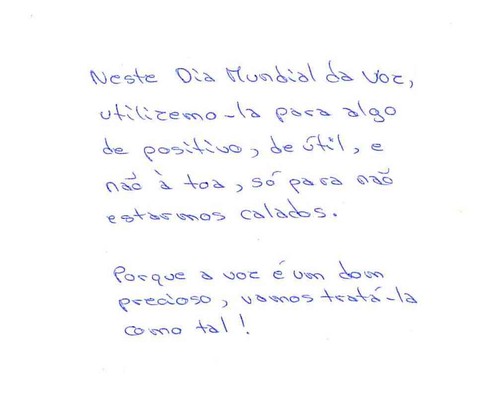 Neste Dia Mundial da Voz,
utilizemo-la para algo
de positivo, de útil, e
não à toa, só para não
estarmos calados.
Porque a voz é um dom
precioso, vamos tratá-la
como tal!